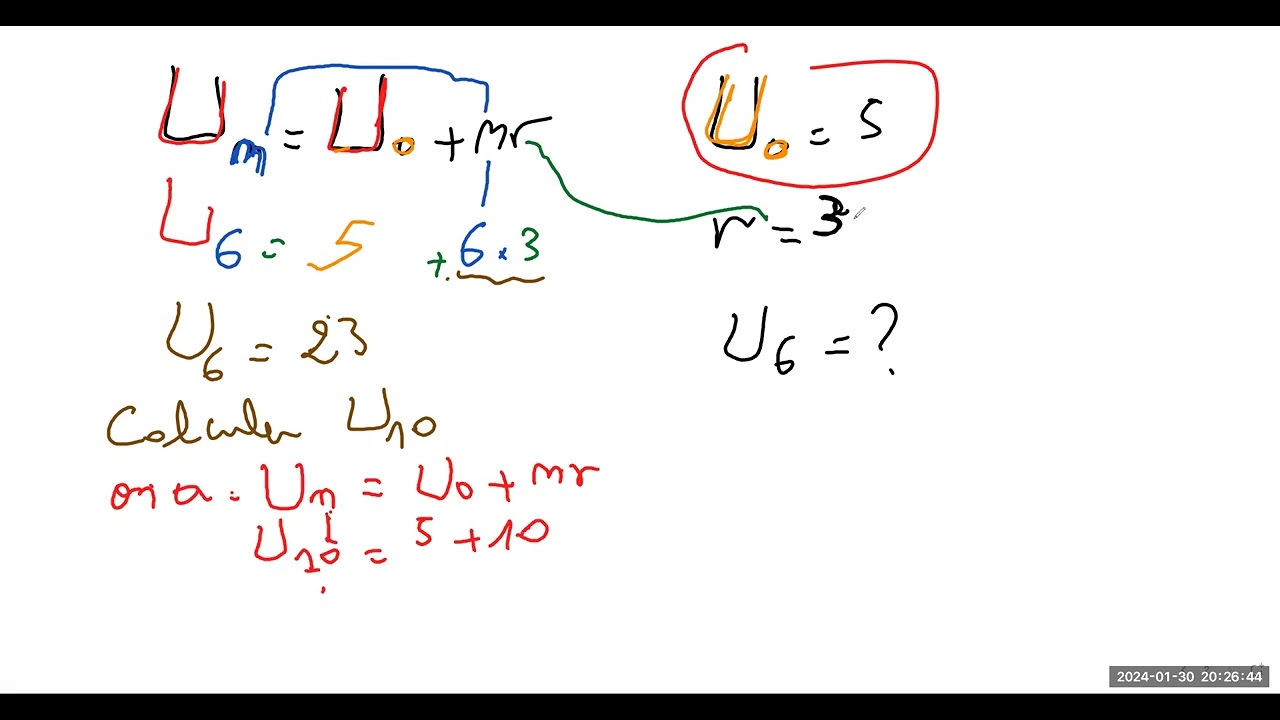 Un = U0 + nr
U0 = 5
r = 3
U6 = 5 + 6 × 3
U6 = 23
U6 = ?
Calculer U10
on a : Un = U0 + nr
U10 = 5 + 10
2024-01-30 20:26:44